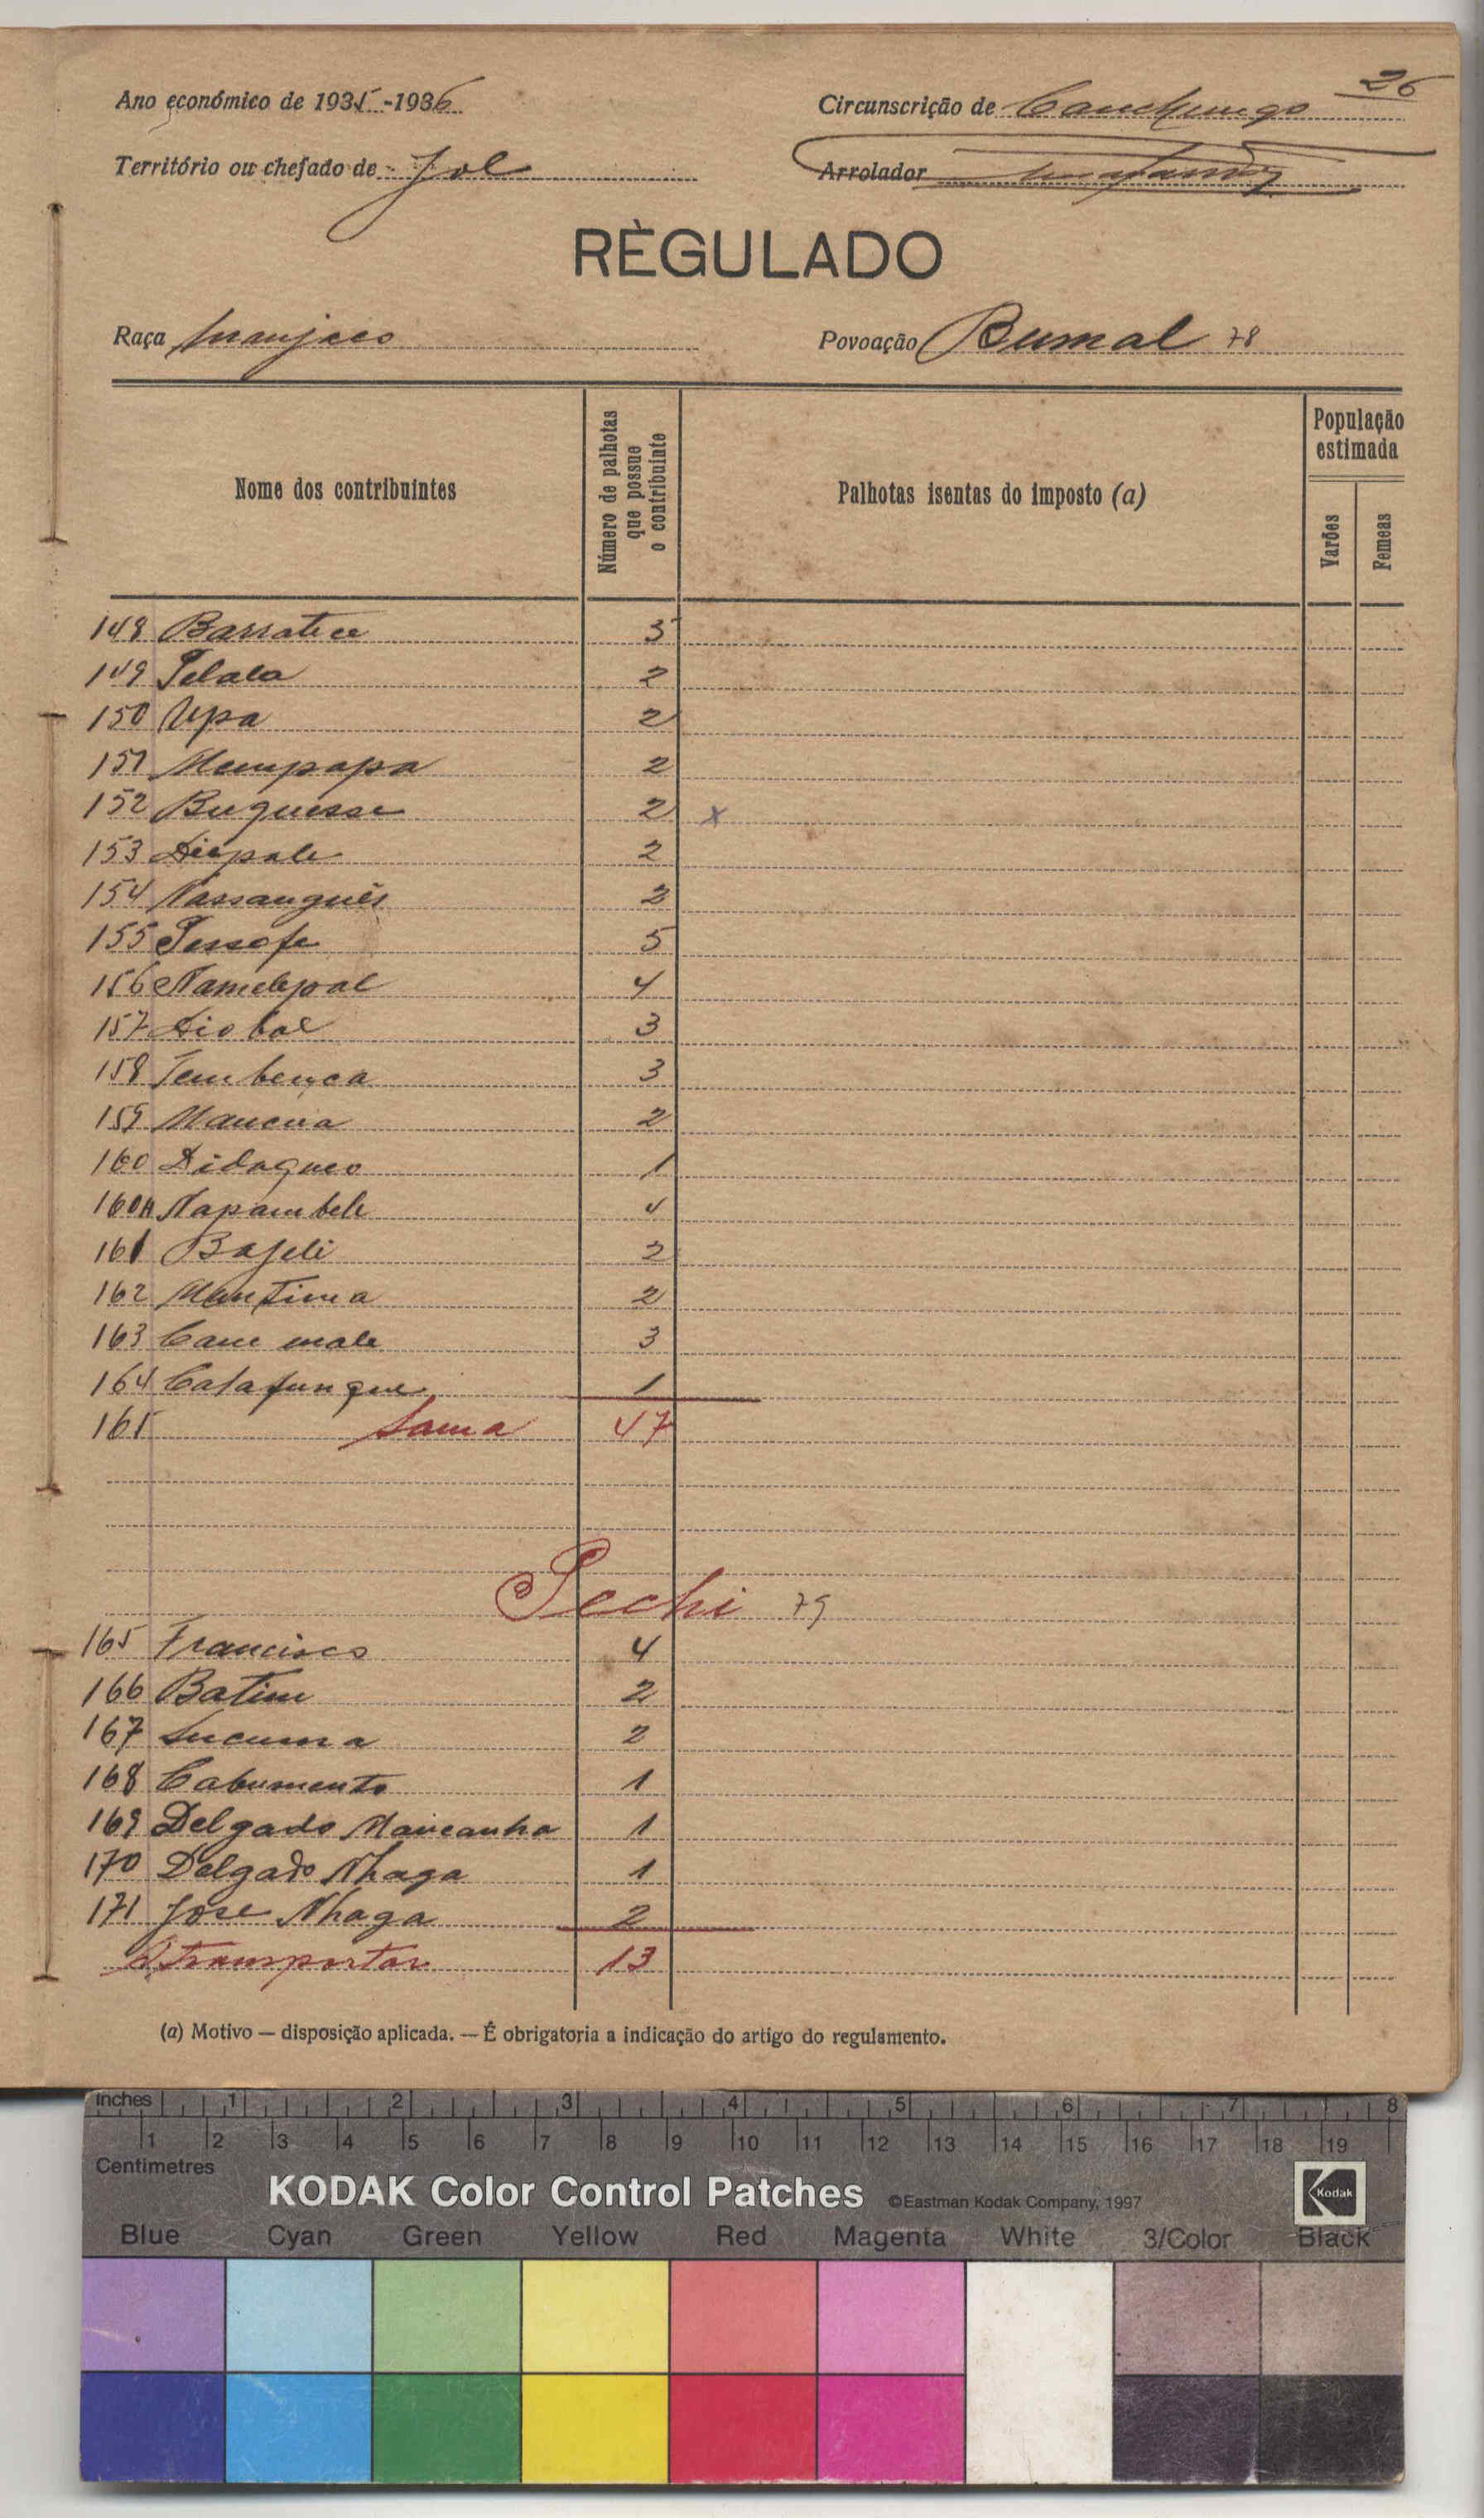 26
Ano económico de 1935-1936
Circunscrição de Canchungo
Território ou chefado de Jol
Arrolador
RÈGULADO
Raça manjaco
Povoação Bumal 78
Nome dos contribuintes
Número de palhotas que possue o contribuinte
Palhotas isentas do imposto (a)
População estimada
Varões
Femeas
148 Barratece 3
149 Pelala 2
150 Upa 2
151 Mempapa 2
152 Buguesse 2 x
153 Diepale 2
154 Nassangués 3
155 Pessofe 5
156 Namelepal 4
157 Diobal 3
158 Tembenca 3
159 Mancua 2
160 Didogueo 1
160A Napambele 4
161 Bajeli 2
162 Mantima 2
163 Cam male 3
164 Catafunque 1
165 Soma 47
Pechi 79
165 Francisco 4
166 Batim 2
167 Lucuma 2
168 Cabumento 1
169 Delgado Mancanha 1
170 Delgado Nhaga 1
171 Jose Nhaga 2
A transportar 13
(a) Motivo — disposição aplicada. — É obrigatoria a indicação do artigo do regulamento.
Inches 1 2 3 4 5 6 7 8
1 2 3 4 5 6 7 8 9 10 11 12 13 14 15 16 17 18 19
Centimetres
KODAK Color Control Patches ©Eastman Kodak Company, 1997 Kodak
Blue Cyan Green Yellow Red Magenta White 3/Color Black